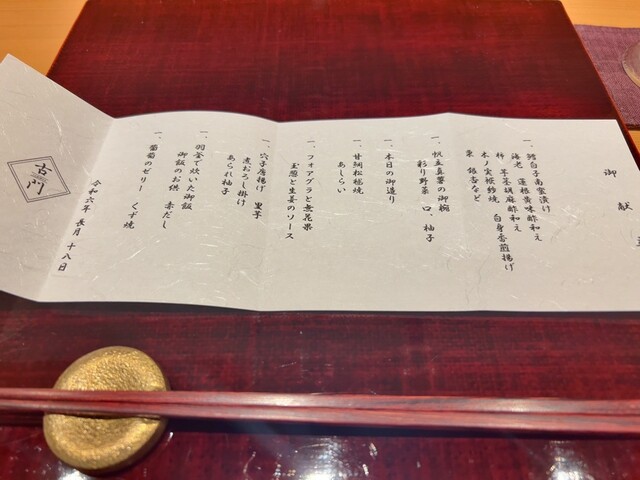 御献立
一、鱈白子南蛮漬け
海老 蓮根黄味酢和え
柿 苿苣胡麻酢和え
木ノ実松砂焼 白身香煎揚げ
栗 銀杏など
一、帆立真薯の御椀
彩り野菜 口、柚子
一、本日の御造り
一、甘鯛松笠焼
あしらい
一、フォアグラと無花果
玉葱と生姜のソース
一、穴子唐揚げ 里芋
煮おろし掛け
あられ柚子
一、羽釜で炊いた御飯
御飯のお供 赤だし
一、葡萄のゼリー くず焼
令和六年 長月 十八日
古門